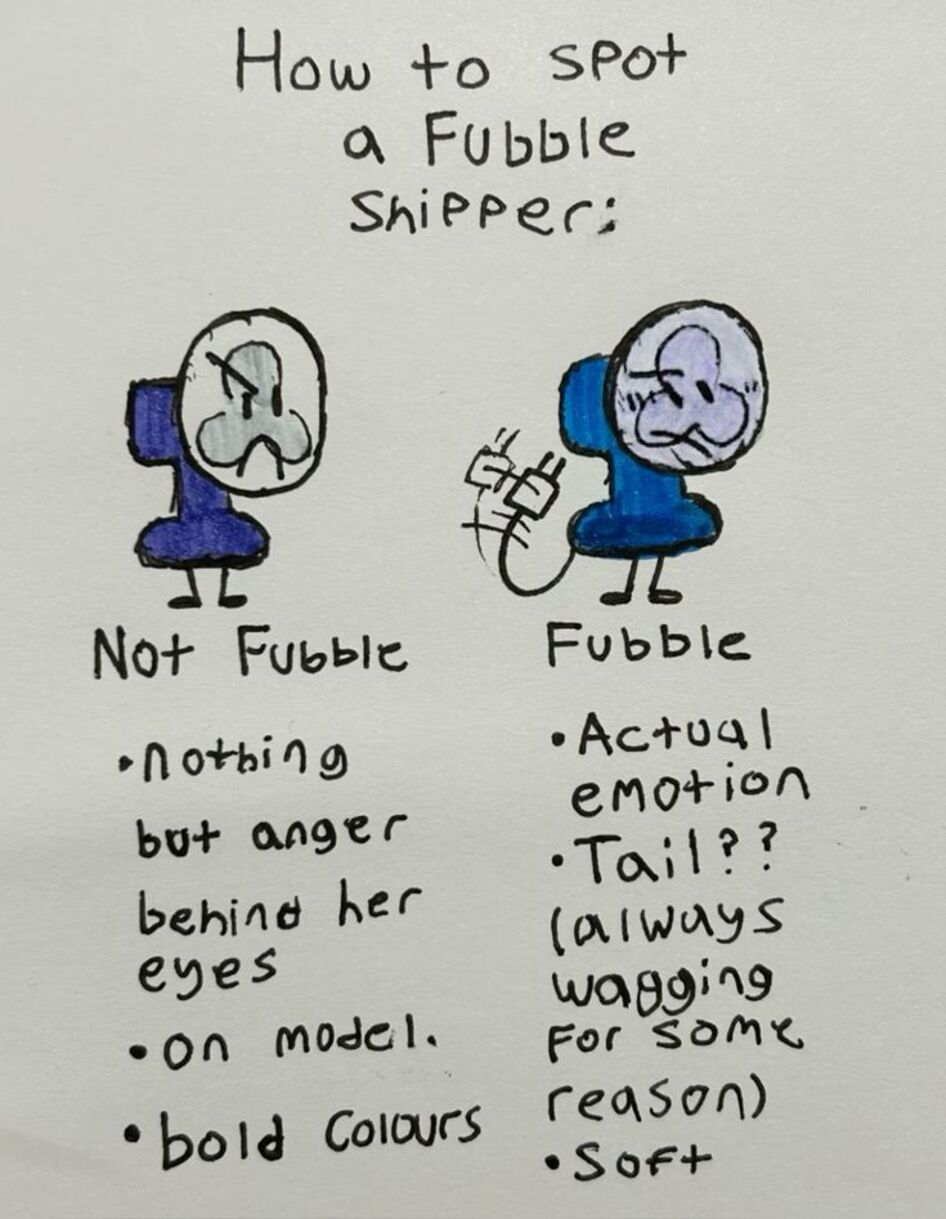 How to spot
a Fubble
Shipper:
Not Fubble
• nothing
but anger
behind her
eyes
• on model.
• bold colours
Fubble
• Actual
emotion
• Tail??
(always
wagging
for some
reason)
• Soft